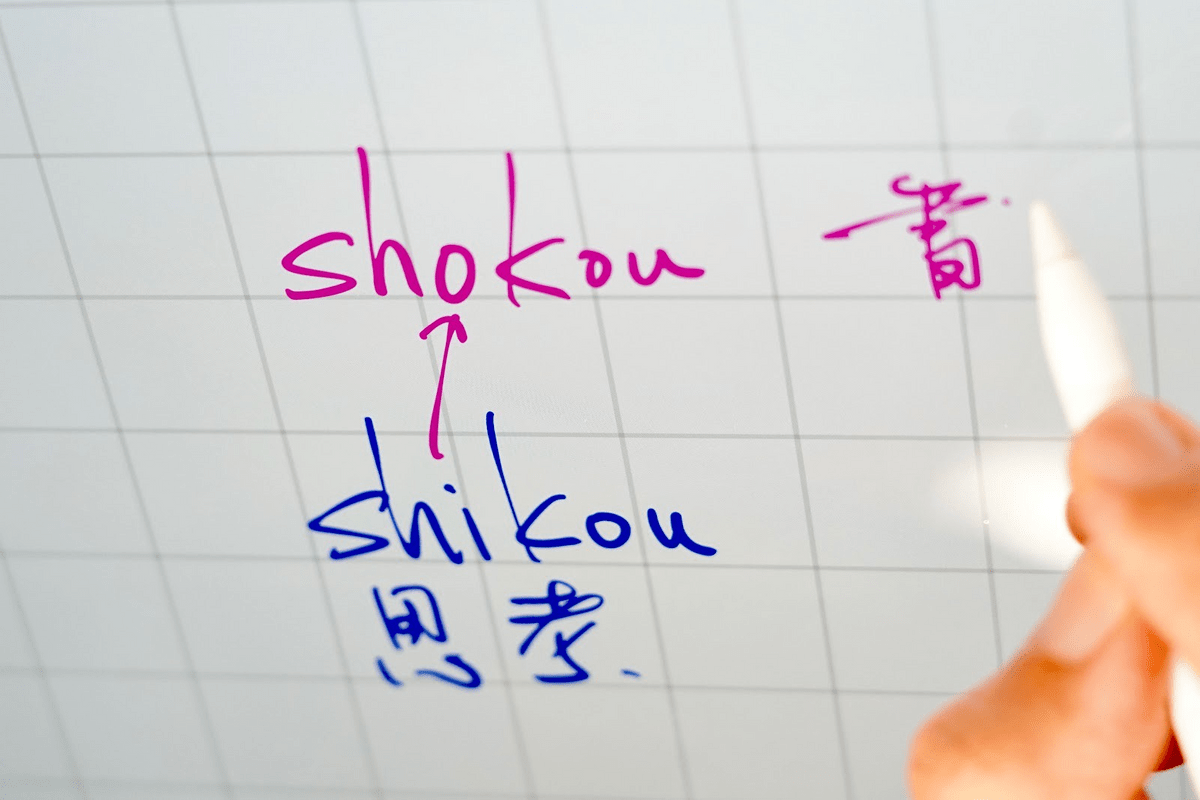 shokou 書
shikou
思考.